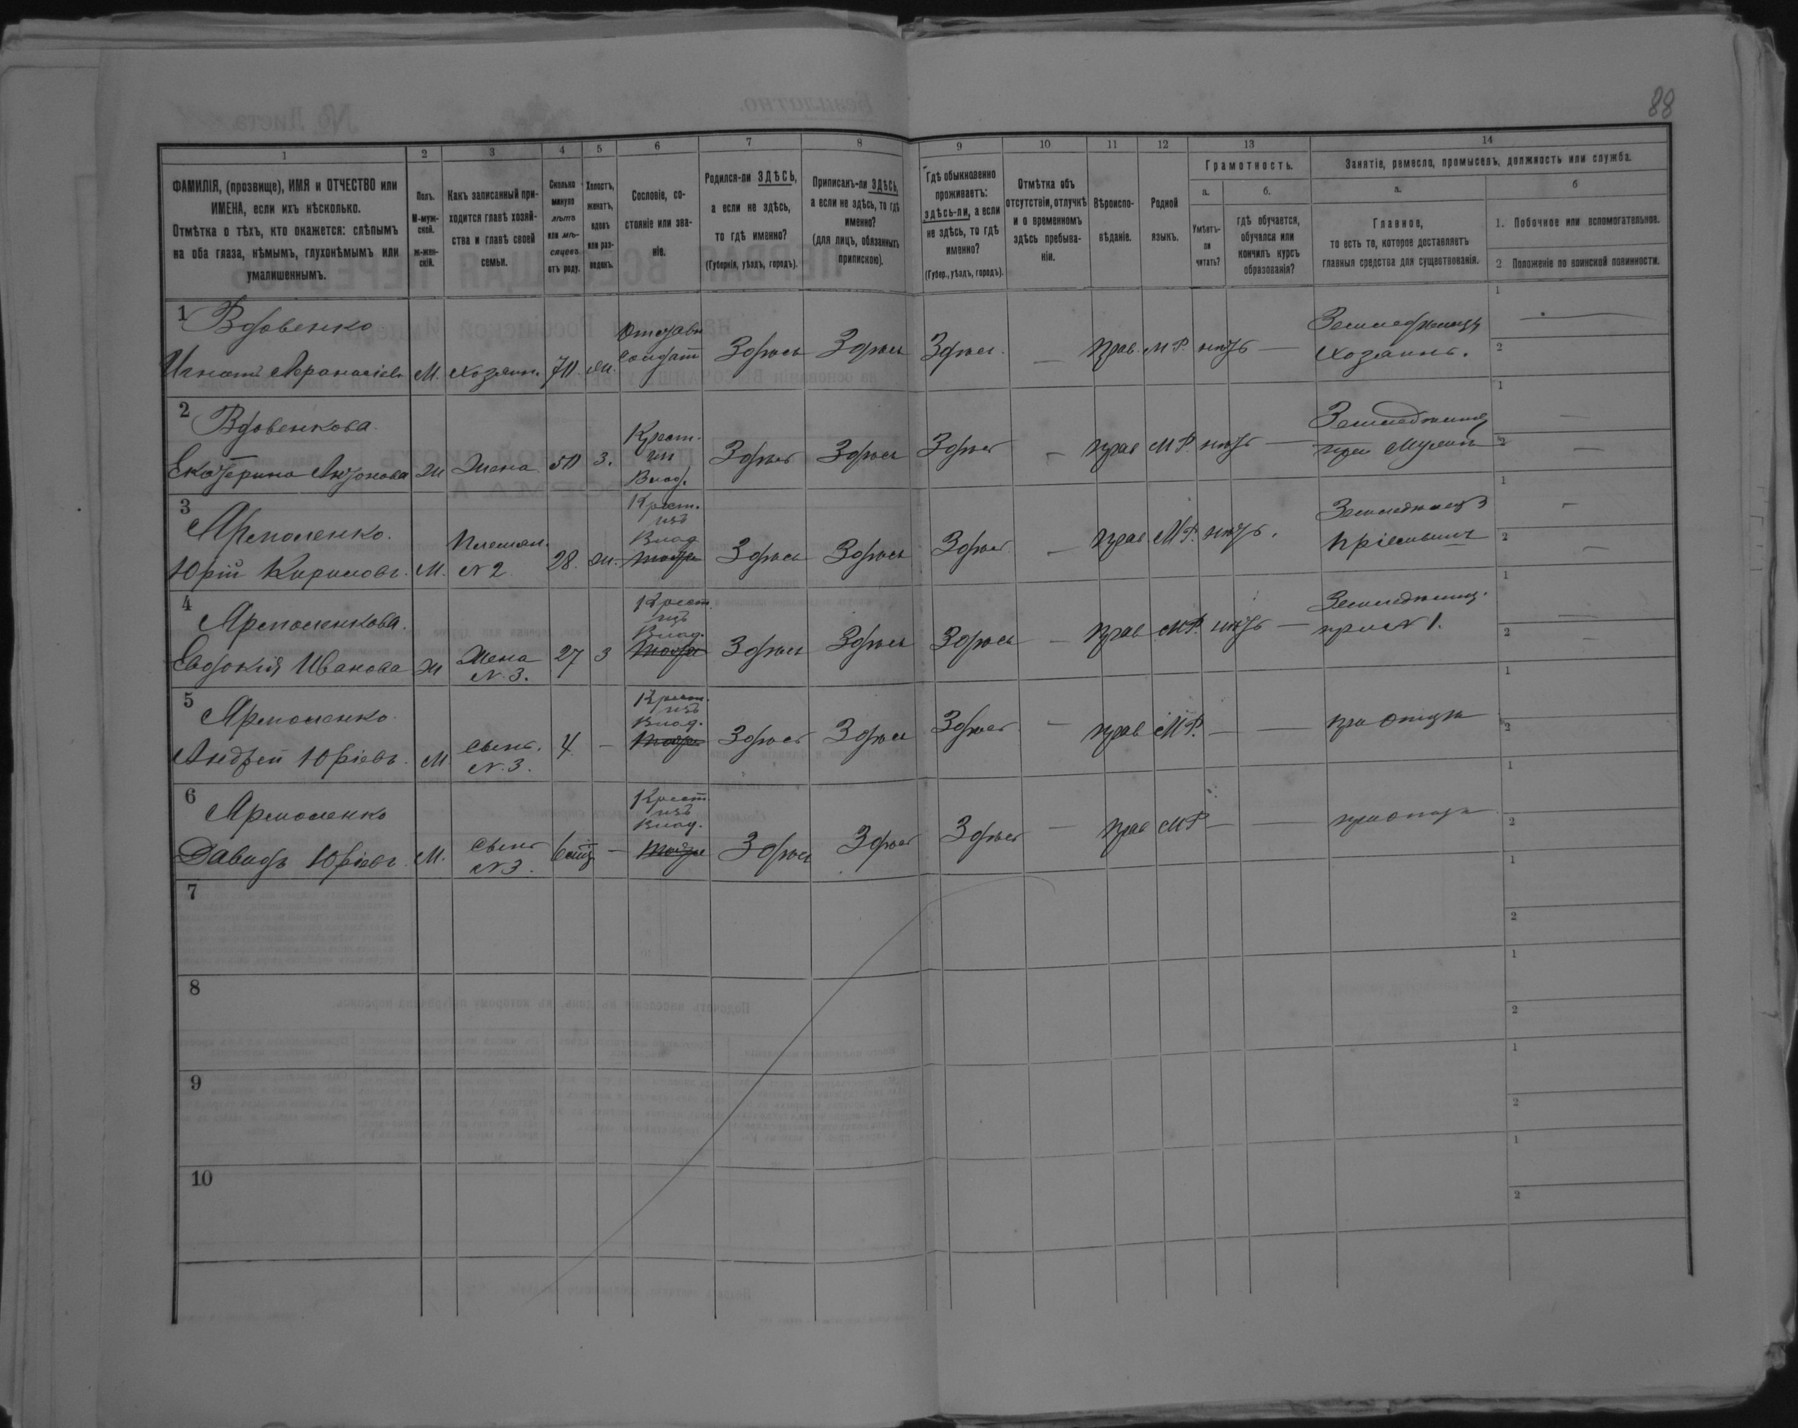 88
1 2 3 4 5 6 7 8 9 10 11 12 13 14
ФАМИЛІЯ, (прозвище), ИМЯ и ОТЧЕСТВО или
ИМЕНА, если ихъ нѣсколько.
Отмѣтка о тѣхъ, кто окажется: слѣпымъ
на оба глаза, нѣмымъ, глухонѣмымъ или
умалишеннымъ.
Полъ.
М-муж-
ской.
Ж-жен-
скій.
Какъ записанный при-
ходится главѣ хозяй-
ства и главѣ своей
семьи.
Сколько
минуло
лѣтъ
или мѣ-
сяцевъ
отъ роду.
Холостъ,
женатъ,
вдовъ
или раз-
веденъ.
Сословіе, со-
стояніе или зва-
ніе.
Родился-ли ЗДѢСЬ,
а если не здѣсь,
то гдѣ именно?
(Губернія, уѣздъ, городъ).
Приписанъ-ли ЗДѢСЬ,
а если не здѣсь, то гдѣ
именно?
(для лицъ, обязанныхъ
припискою).
Гдѣ обыкновенно
проживаетъ:
здѣсь-ли, а если
не здѣсь, то гдѣ
именно?
(Губер., уѣздъ, городъ).
Отмѣтка объ
отсутствіи, отлучкѣ
и о временномъ
здѣсь пребыва-
ніи.
Вѣроиспо-
вѣданіе.
Родной
языкъ.
Грамотность.
а.
Умѣетъ-
ли
читать?
б.
гдѣ обучается,
обучался или
кончилъ курсъ
образованія?
Занятіе, ремесло, промыселъ, должность или служба.
а.
Главное,
то есть то, которое доставляетъ
главныя средства для существованія.
б
1. Побочное или вспомогательное.
2 Положеніе по воинской повинности.
1 Вдовенко
Игнатъ Афанасіевъ М. хозяинъ. 70 ж. Отставн. солдат Здѣсь Здѣсь Здѣсь — прав. М.Р. нѣтъ — Земледѣлецъ хозяинъ.
1
2
2 Вдовенкова
Екатерина Антонова Ж Жена 50 З. Крест. изъ Влад. Здѣсь Здѣсь Здѣсь — прав М Р нѣтъ — Земледѣлица при мужѣ
1 —
2 —
3 Ярмоленко.
Юрій Кириловъ. М. Племян. N 2 28. ж. Крест. изъ Влад Здѣсь Здѣсь Здѣсь — прав М.Р. нѣтъ. Земледѣлецъ
1 —
2 —
4 Ярмоленкова.
Евдокія Иванова Ж Жена N. 3. 27 З Крест. изъ Влад. Здѣсь Здѣсь Здѣсь — прав М.Р. нѣтъ — Земледѣлиц. при N 1.
1 —
2 —
5 Ярмоленко.
Андрей Юріевъ. М сынъ. N. 3. 4 — Крест. изъ Влад. Здѣсь Здѣсь Здѣсь — прав М.Р. — — при отцѣ
1
2
6 Ярмоленко
Давидъ Юріевъ М. сынъ N 3. 6 мѣ — Крест. изъ Влад. Здѣсь Здѣсь Здѣсь — прав М.Р — — при отцѣ
1
2
7
1
2
8
1
2
9
1
2
10
1
2